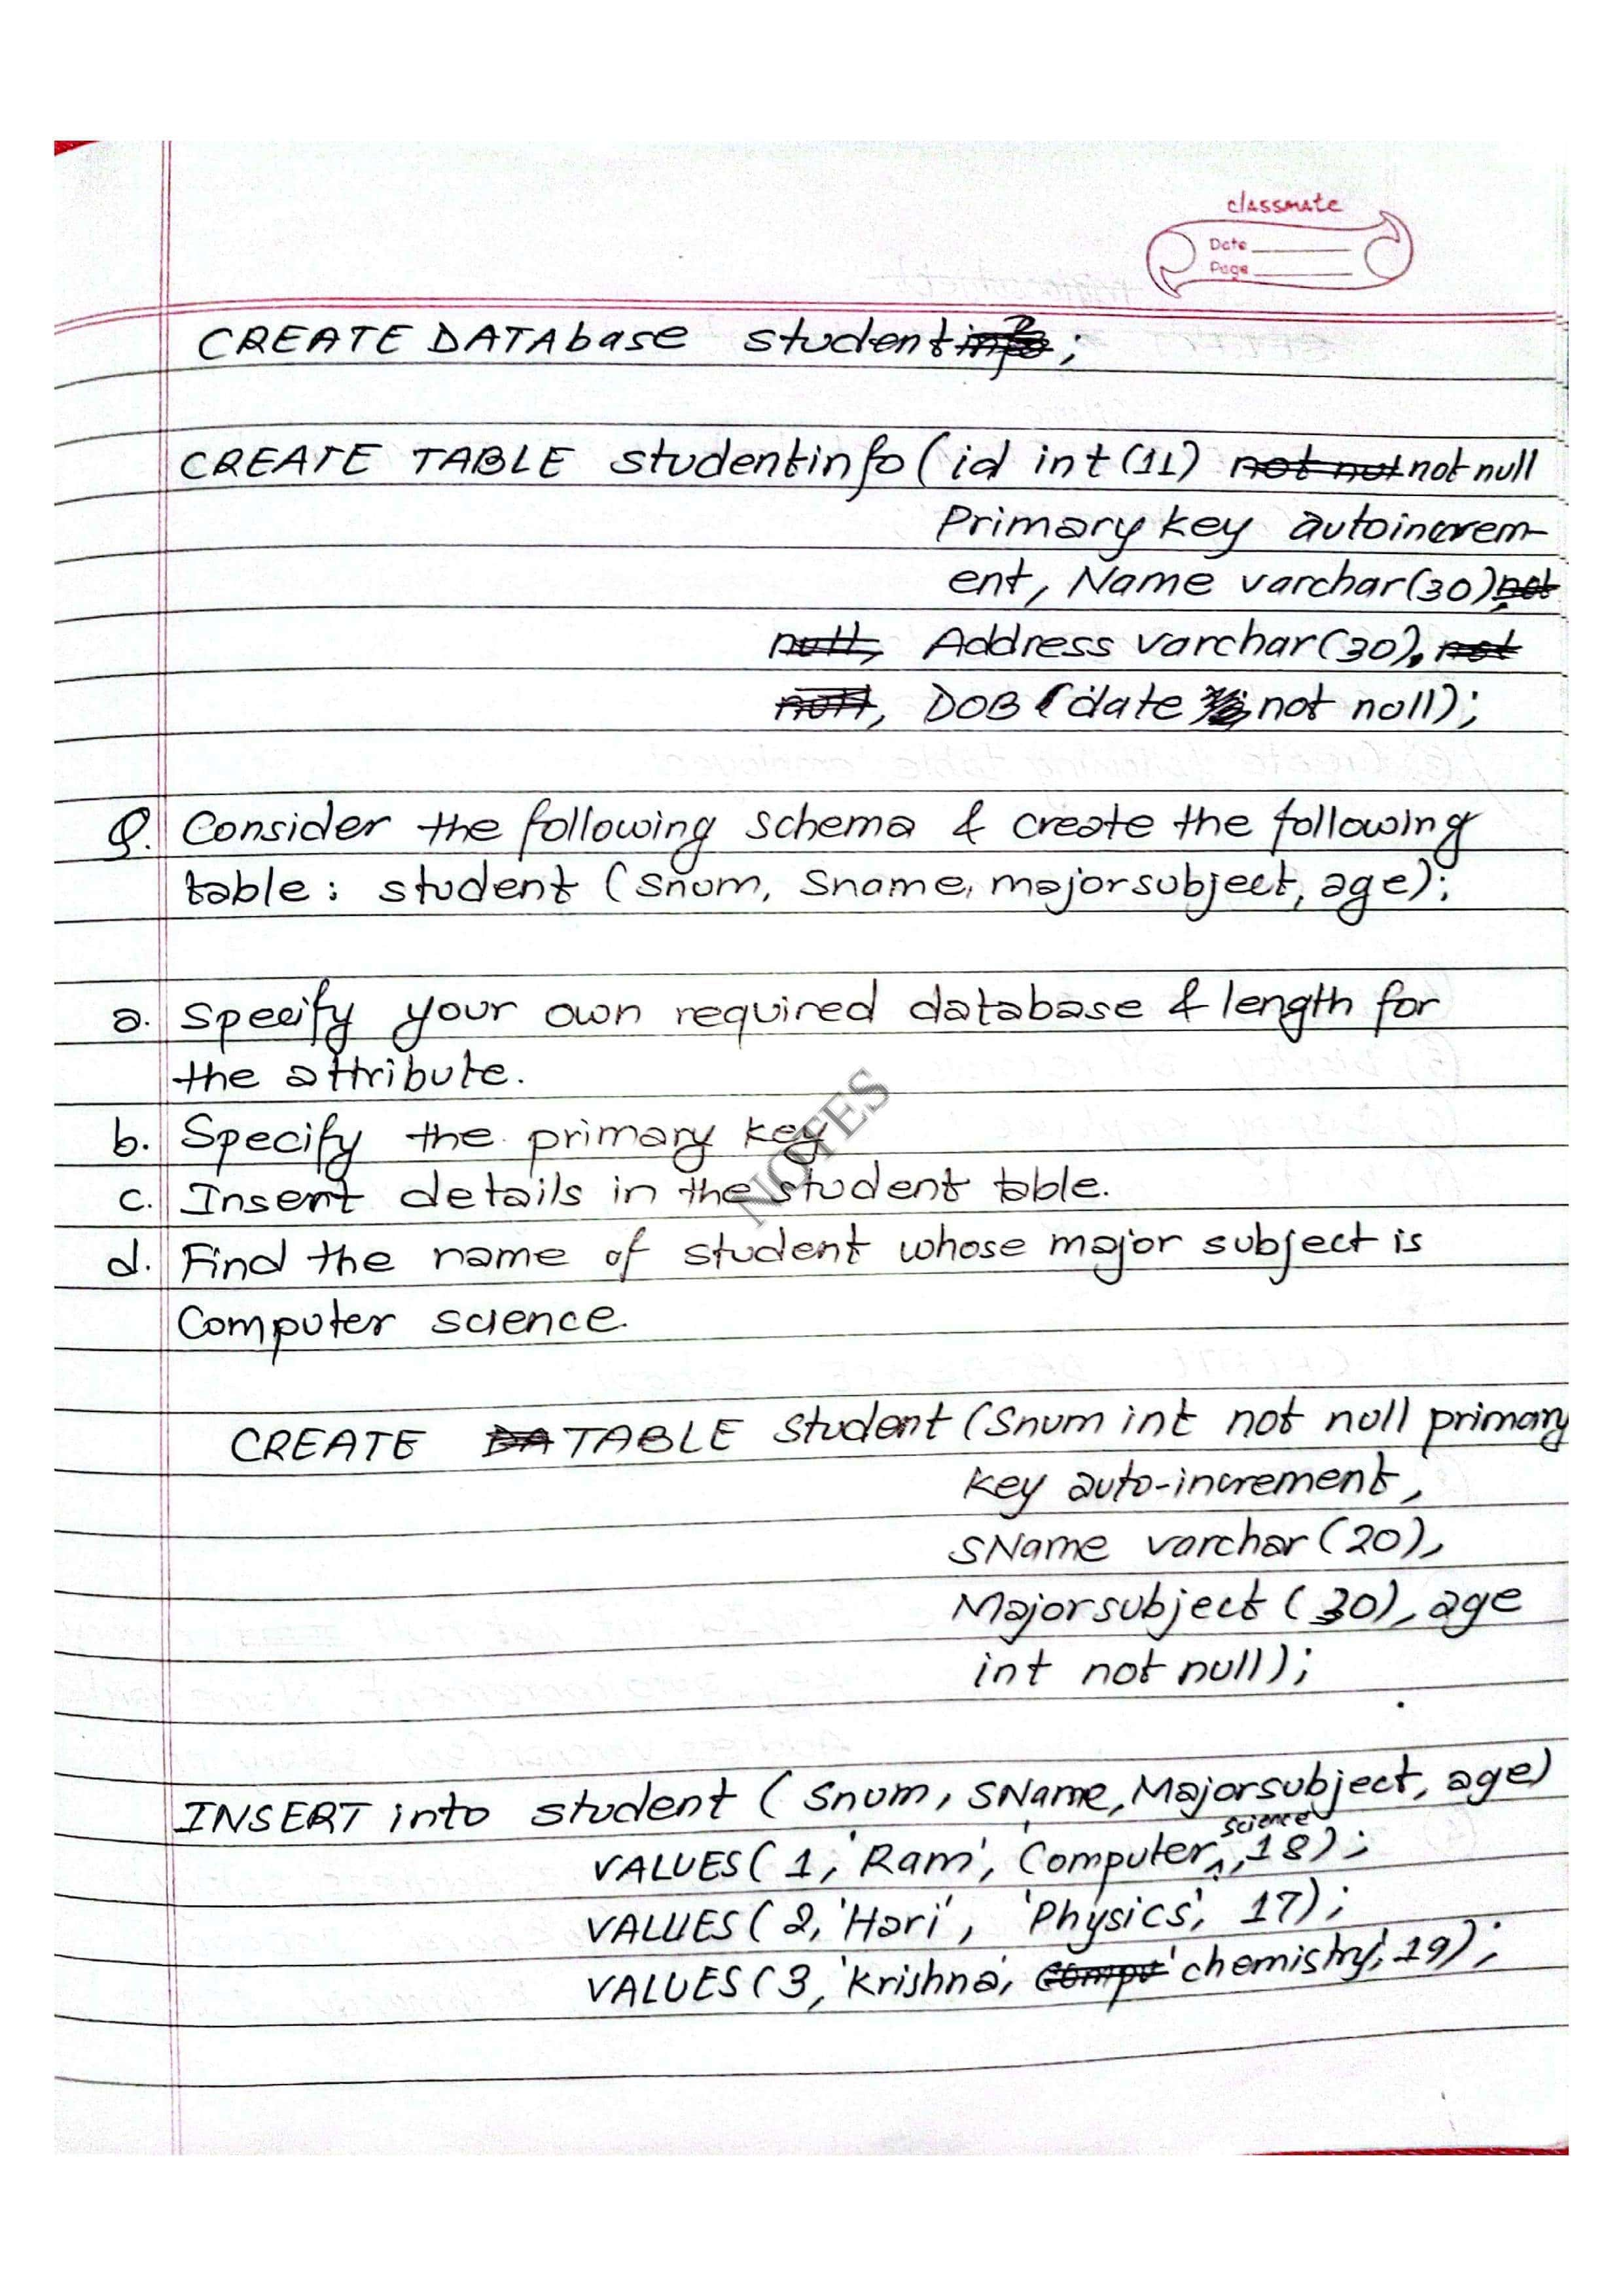 classmate
Date
Page
CREATE DATAbase student;
CREATE TABLE studentinfo (id int (11) not null
Primary key autoincrem-
ent, Name varchar(30),
Address varchar(30),
, DOB (date not null);
Q. Consider the following schema & create the following
table: student (Snum, Sname, majorsubject, age);
a. Specify your own required database & length for
the attribute.
b. Specify the primary key
c. Insert details in the student table.
d. Find the name of student whose major subject is
Computer science.
NOTES
CREATE TABLE student (Snum int not null primary
key auto-increment,
SName varchar (20),
Majorsubject (30), age
int not null);
INSERT into student (Snum, SName, Majorsubject, age)
VALUES( 1, 'Ram', 'Computer science, 18);
VALUES( 2, 'Hari', 'Physics', 17);
VALUES( 3, 'Krishna', 'chemistry', 19);